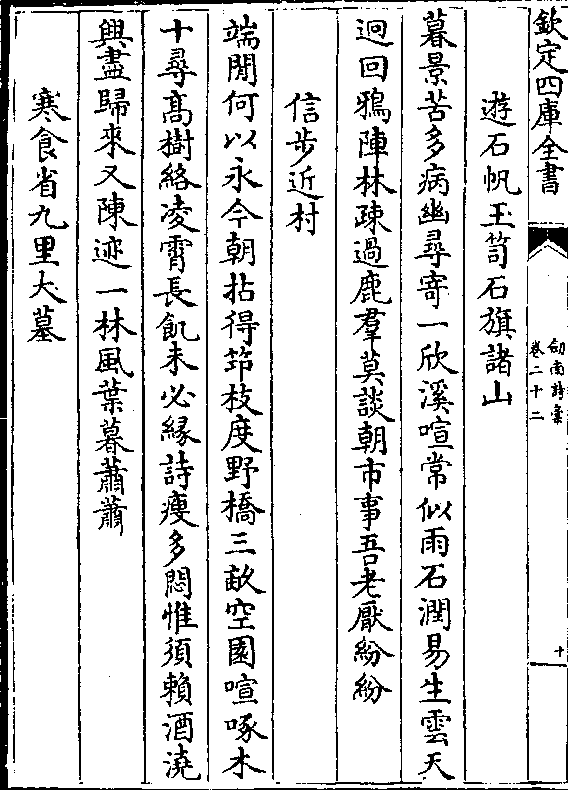 欽定四庫全書
劍南詩稾
卷二十二
十
遊石帆玉笥石旗諸山
暮景苦多病幽尋寄一欣溪喧常似雨石潤易生雲天
迥回鴉陣林疎過鹿羣莫談朝市事吾老厭紛紛
信步近村
端閒何以永今朝拈得笻枝度野橋三畝空園喧啄木
十尋髙樹絡凌霄長飢未必緣詩瘦多悶惟須賴酒澆
興盡歸來又陳迹一林風葉暮蕭蕭
寒食省九里大墓